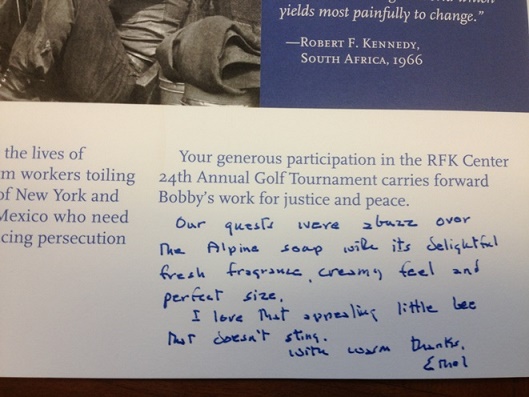 yields most painfully to change."
—Robert F. Kennedy,
South Africa, 1966
the lives of
m workers toiling
of New York and
Mexico who need
cing persecution
Your generous participation in the RFK Center
24th Annual Golf Tournament carries forward
Bobby's work for justice and peace.
Our guests were abuzz over
The Alpine soap with its delightful
fresh fragrance, creamy feel and
perfect size.
I love that appealing little bee
that doesn't sting.
with warm thanks,
Ethel